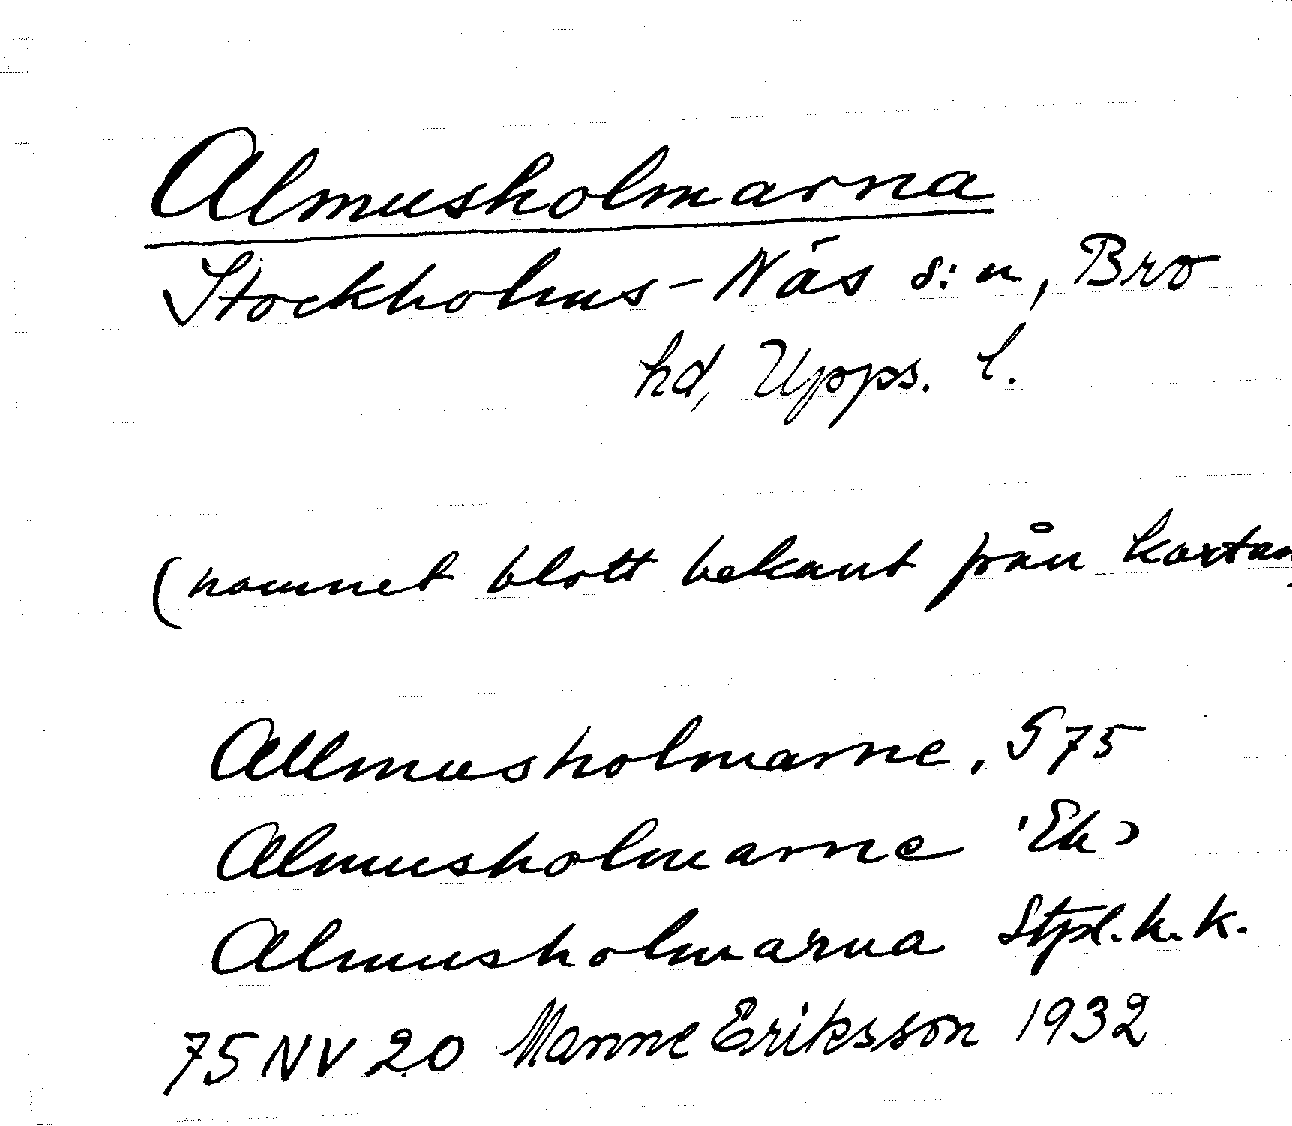 Almusholmarna
Stockholms-Näs s:n, Bro
hd, Upps. l.
(namnet blott bekant från kartan
Allmusholmarne, G 75
Almusholmarne 'Ek>
Almusholmarna Stpl.k.k.
75 NV 20 Manne Eriksson 1932